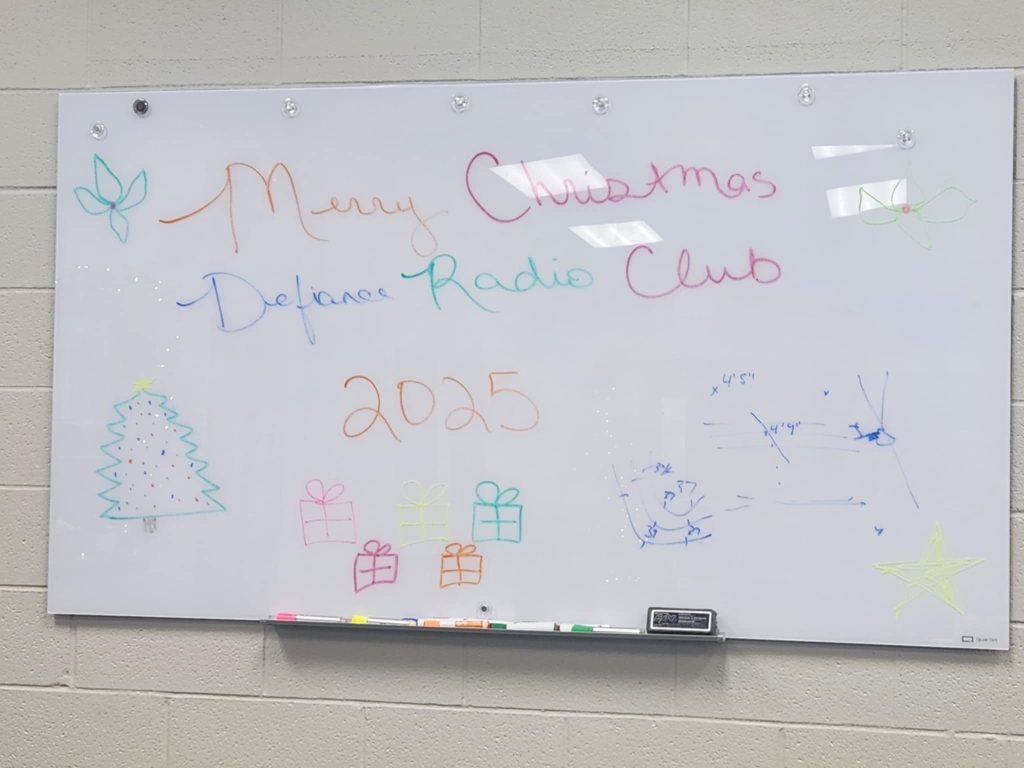 Merry Christmas
Defiance Radio Club
2025
4'5"
4'9"
37